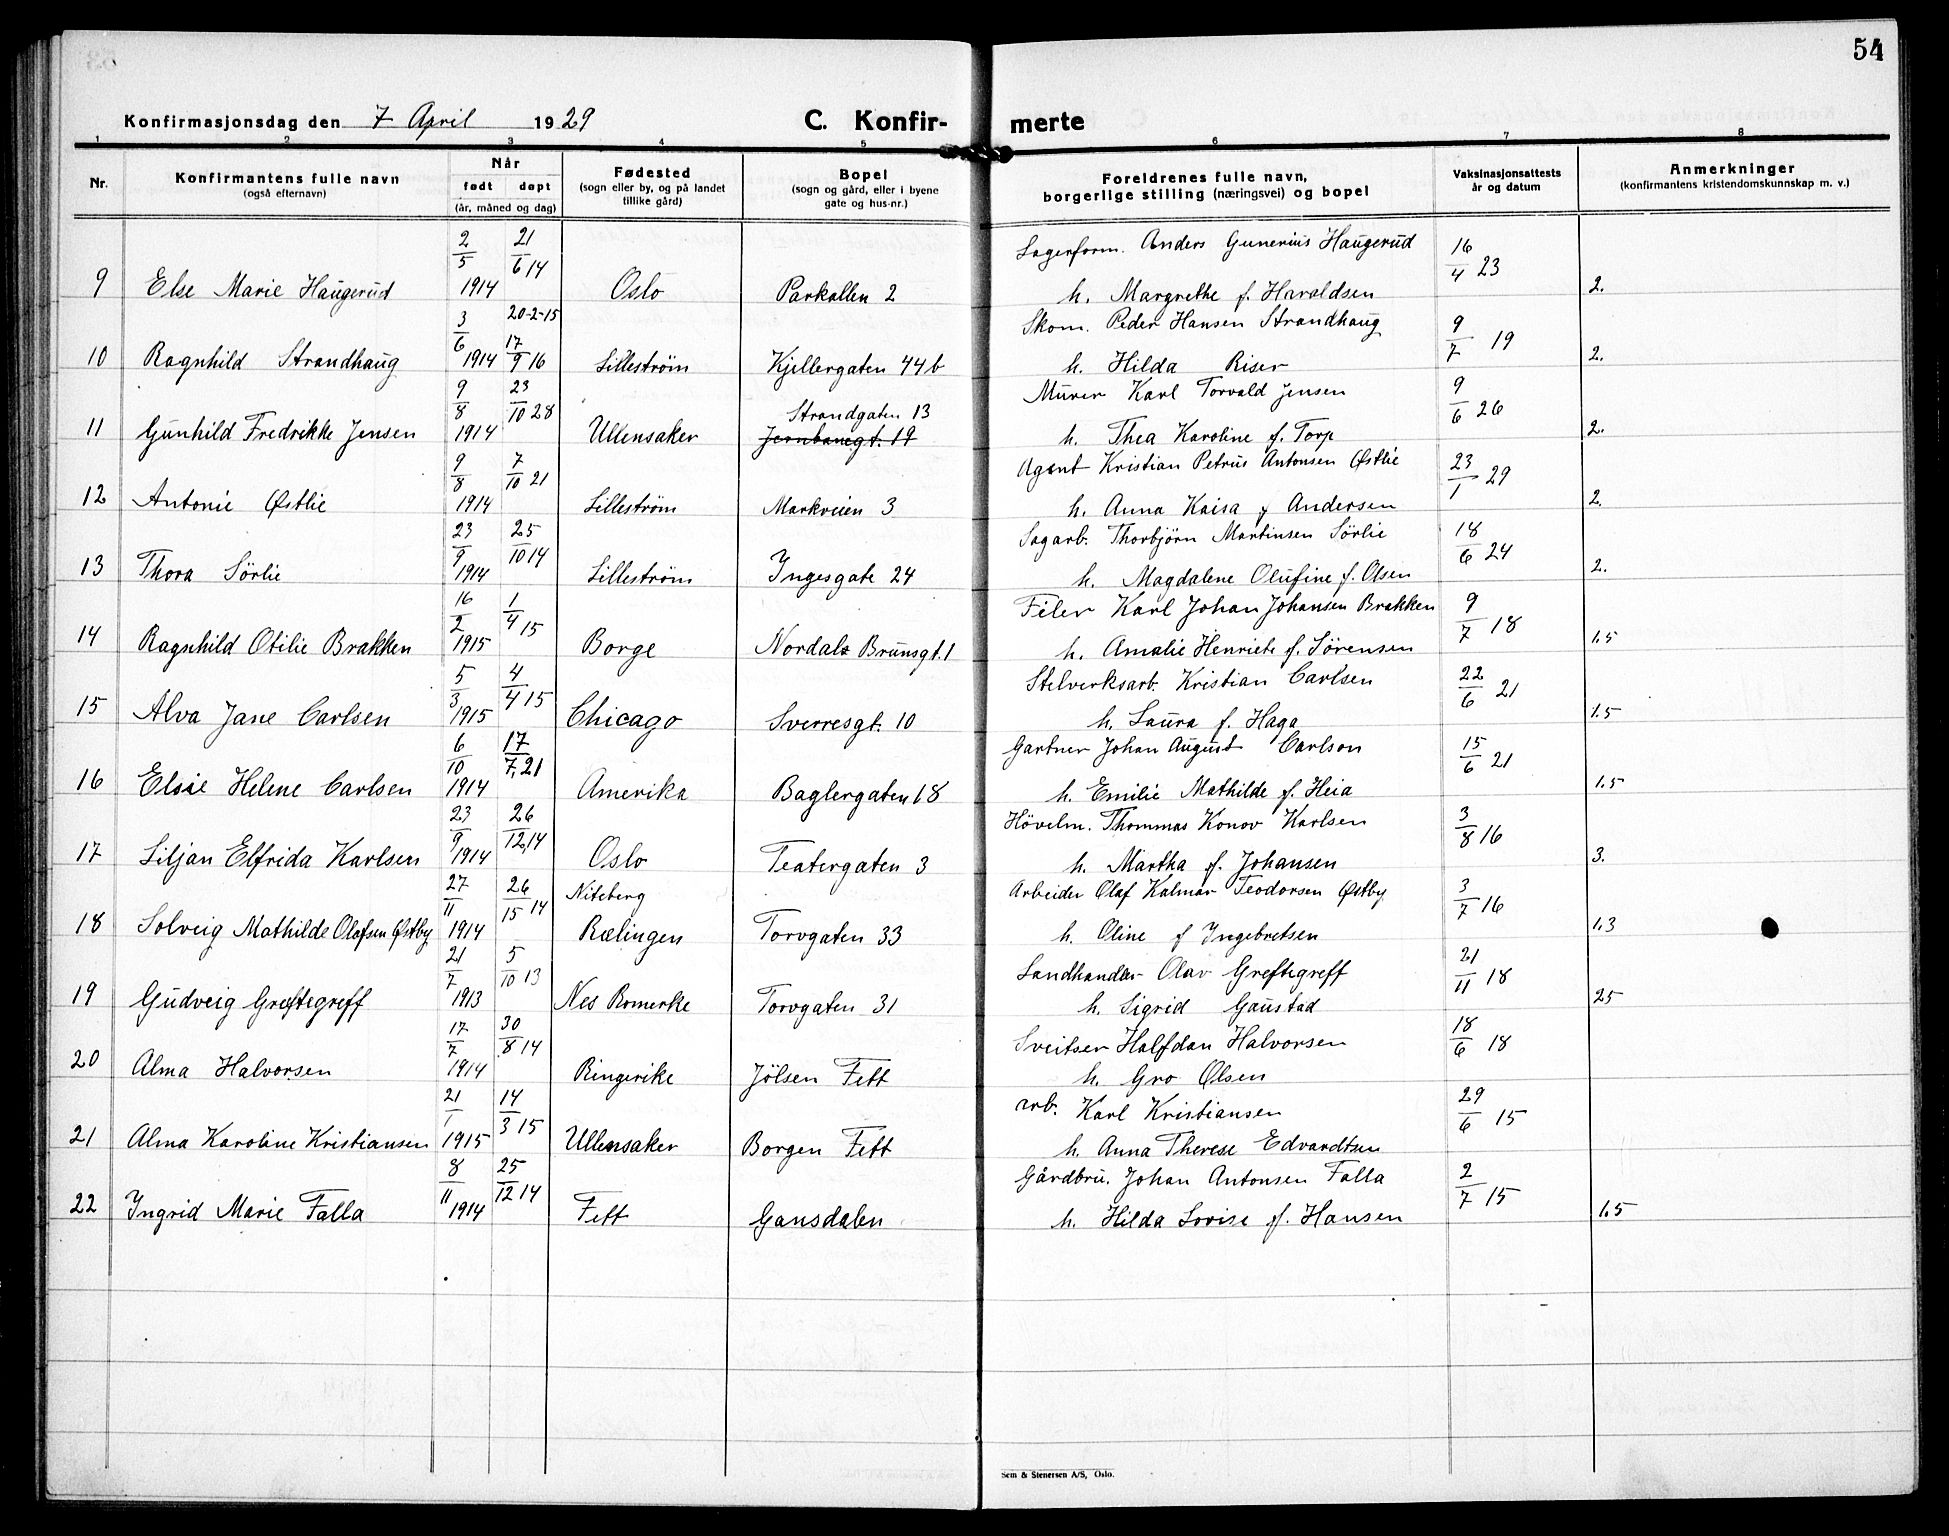 54
Konfirmasjonsdag den 7 April 1929 C. Konfirmerte
1 2 3 4 5 6 7 8
Nr. Konfirmantens fulle navn (også efternavn) Når født døpt (år, måned og dag) Fødested (sogn eller by, og på landet tillike gård) Bopel (sogn og gård, eller i byene gate og hus-nr.) Foreldrenes fulle navn, borgerlige stilling (næringsvei) og bopel Vaksinasjonsattests år og datum Anmerkninger (konfirmantens kristendomskunnskap m. v.)
2/5 21/6 14 Lagerform. Anders Gunerius Haugerud 16/4 23
9 Else Marie Haugerud 1914 Oslo Parkallen 2 h. Margrethe f. Haraldsen 2.
3/6 20-2-15 Skom. Peder Hansen Strandhaug 9/7 19
10 Ragnhild Strandhaug 1914 17/9 16 Lilleström Kjellergaten 44b h. Hilda Riser 2.
9/8 23/10 28 Strandgaten 13 Murer Karl Torvald Jensen 9/6 26
11 Gunhild Fredrikke Jensen 1914 Ullensaker Jernbanegt. 19 h. Thea Karoline f. Torp 2.
9/8 7/10 21 Agent Kristian Petrus Antonsen Østlie 23/1 29
12 Antonie Østlie 1914 Lilleström Markveien 3 h. Anna Kaisa f Andersen 2.
23/9 25/10 14 Sagarb. Thorbjörn Martinsen Sörlie 18/6 24
13 Thora Sörlie 1914 Lilleström Ingesgate 24 h. Magdalene Olufine f. Olsen 2.
16/2 1/4 15 Filer Karl Johan Johansen Brakken 9/7 18
14 Ragnhild Otilie Brakken 1915 Borge Nordals Brunsgt. 1 h. Amalie Henriete f. Sörensen 1.5
5/3 4/4 15 Stelverksarb. Kristian Carlsen 22/6 21
15 Alva Jane Carlsen 1915 Chicago Sverresgt. 10 h. Laura f. Haga 1.5
6/10 17/7. 21 Gartner Johan August Carlson 15/6 21
16 Elsie Helene Carlsen 1914 Amerika Baglergaten 18 h. Emilie Mathilde f. Heia 1.5
23/9 26/12 14 Hövelm. Thommas Konov Karlsen 3/8 16
17 Liljan Elfrida Karlsen 1914 Oslo Teatergaten 3 h. Martha f. Johansen 3.
27/11 26/15 14 Niteberg Arbeider Olaf Kalmar Teodorsen Østby 3/7 16
18 Solveig Mathilde Olafsen Østby 1914 Rælingen Torvgaten 33 h. Oline f Ingebretsen 1.3
21/7 5/10 13 Landhandler Olav Greftegreff 21/11 18
19 Gudveig Greftegreff 1913 Nes Romerke Torvgaten 31 h. Sigrid Gaustad 25
17/7 30/8 14 Sveitser Halfdan Halvorsen 18/6 18
20 Alma Halvorsen 1914 Ringerike Jölsen Fett h. Gro Olsen
21/1 14/3 15 arb. Karl Kristiansen 29/6 15
21 Alma Karoline Kristiansen 1915 Ullensaker Borgen Fett h. Anna Therese Edvardtsen
8/11 25/12 14 Gårdbru. Johan Antonsen Falla 2/7 15
22 Ingrid Marie Falla 1914 Fett Gansdalen h. Hilda Lovise f. Hansen 1.5
Sem & Stenersen A/S, Oslo.